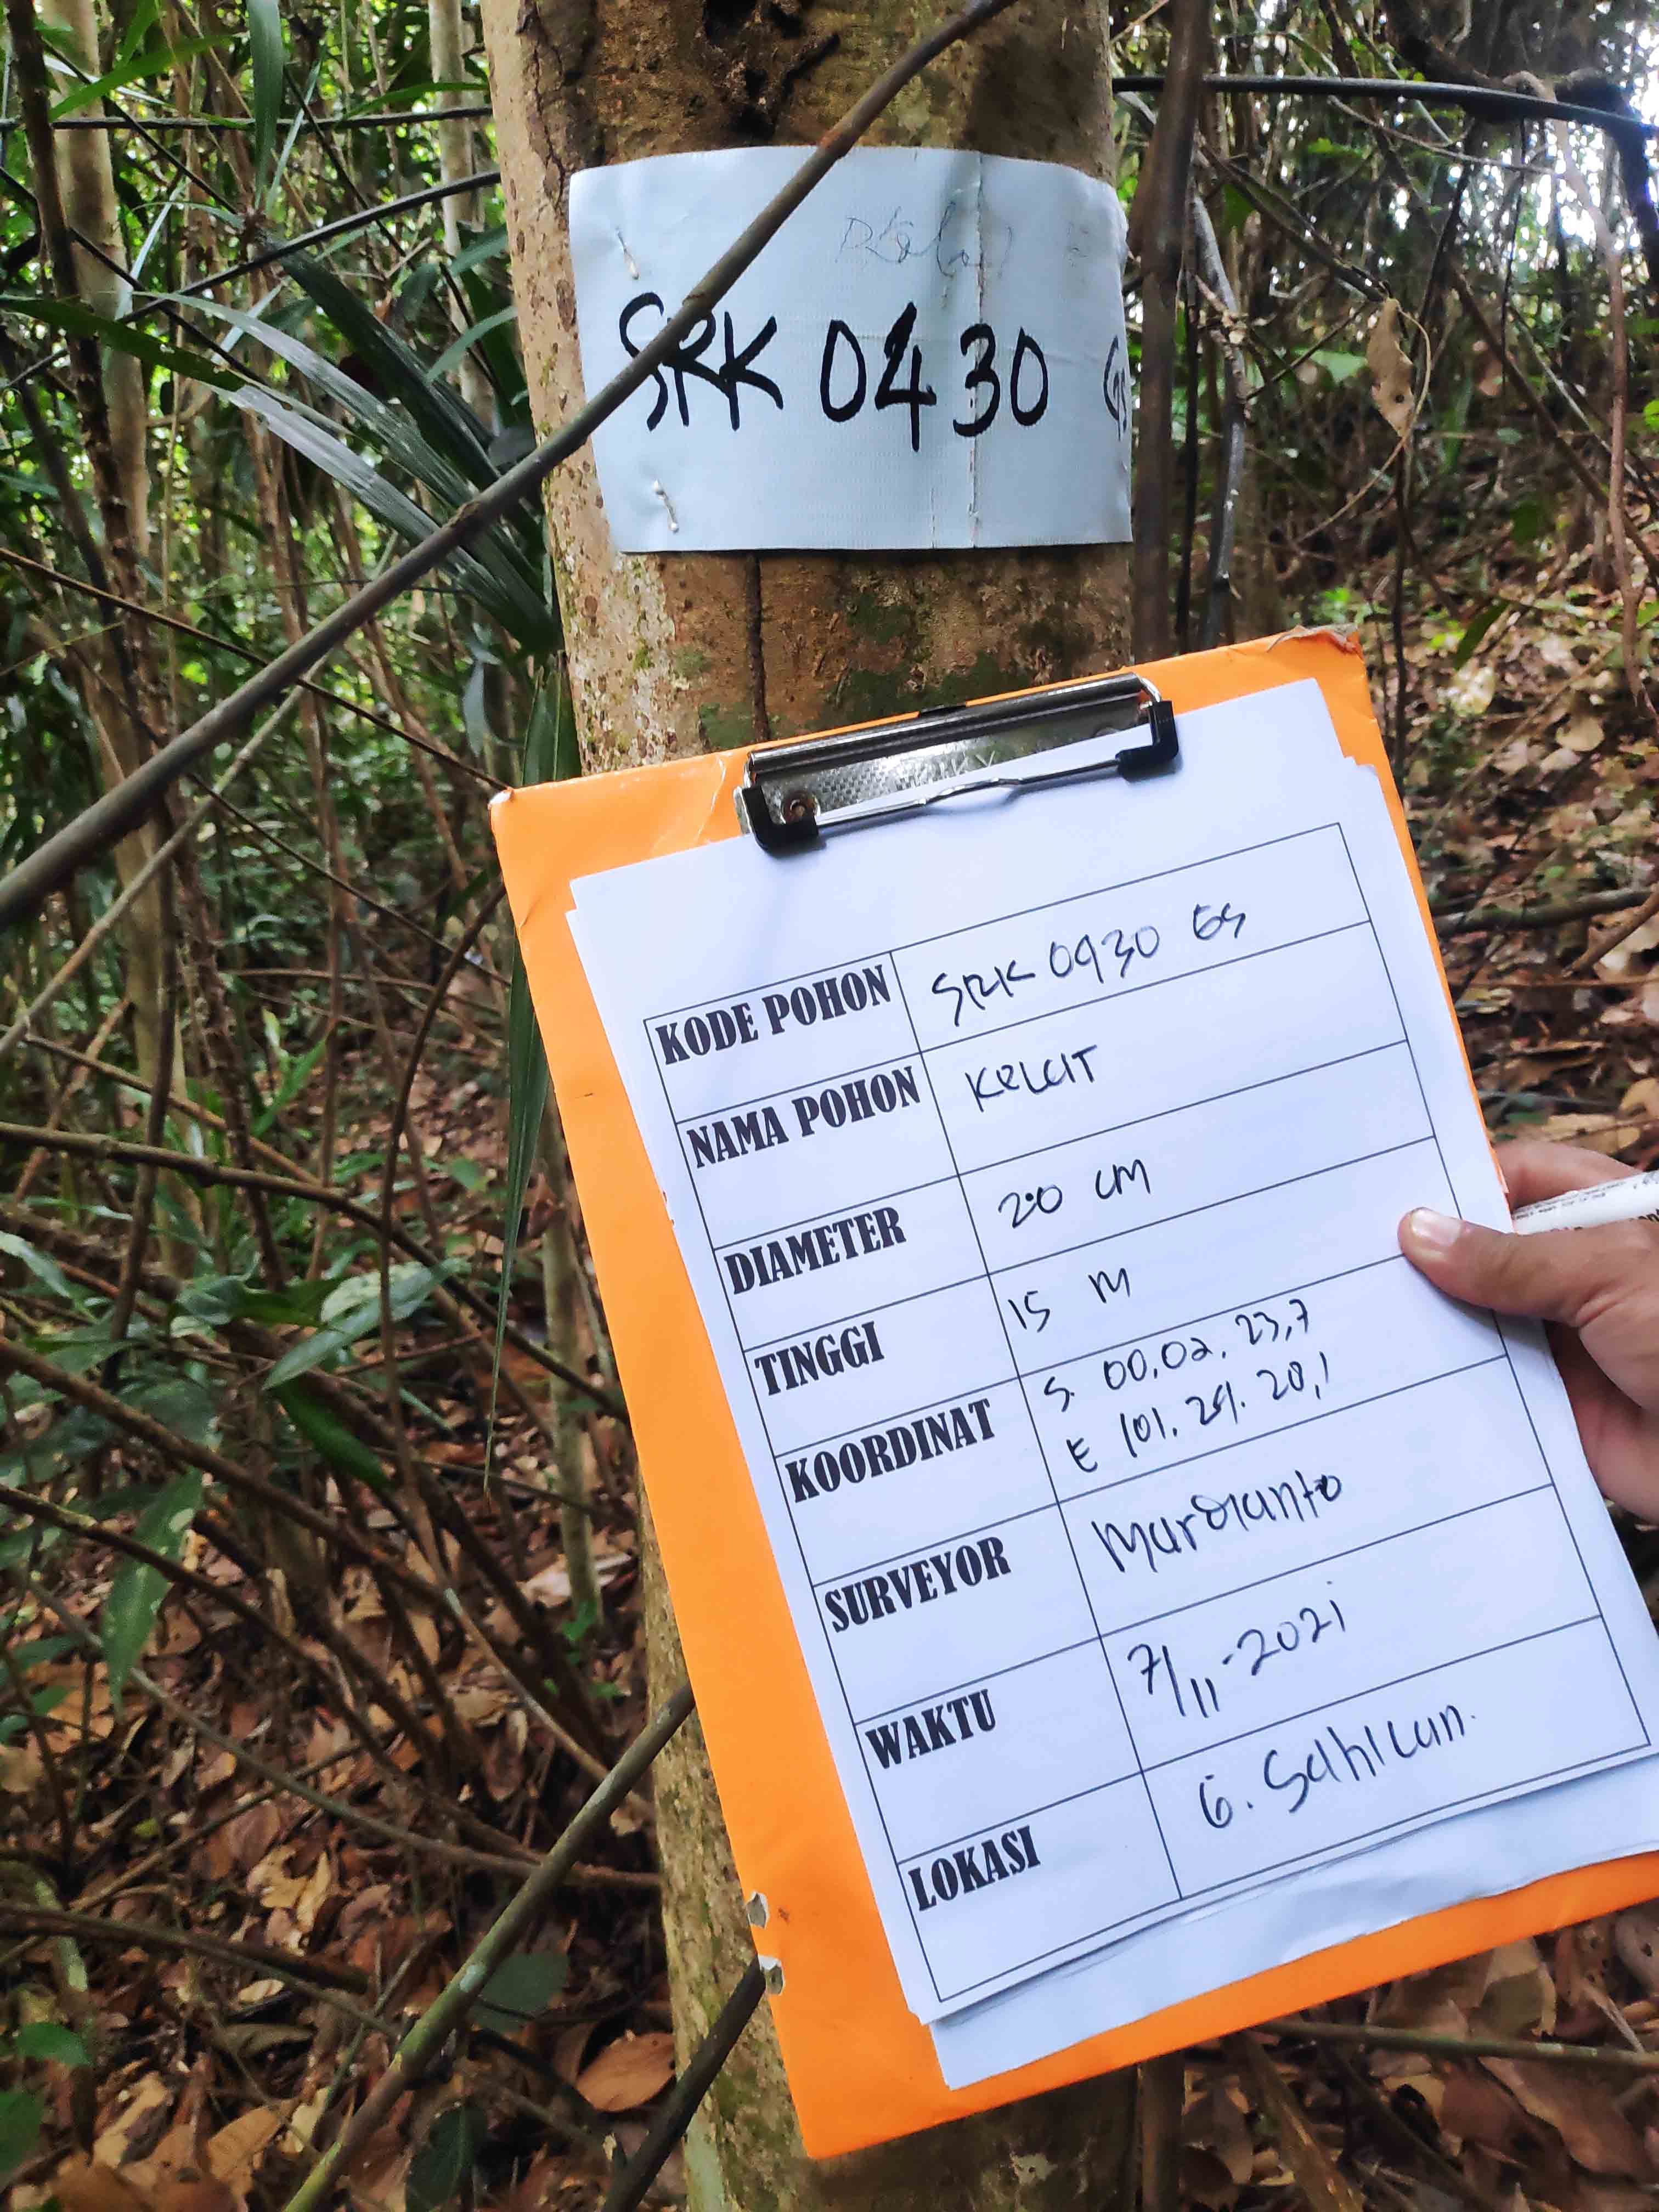 SRK 0430 GS
KODE POHON SRK 0430 GS
NAMA POHON KELAT
DIAMETER 20 CM
TINGGI 15 M
KOORDINAT S. 00.02.23,7
E 101.29.20,1
SURVEYOR Murdianto
WAKTU 7/11-2021
LOKASI G. Sahilan.